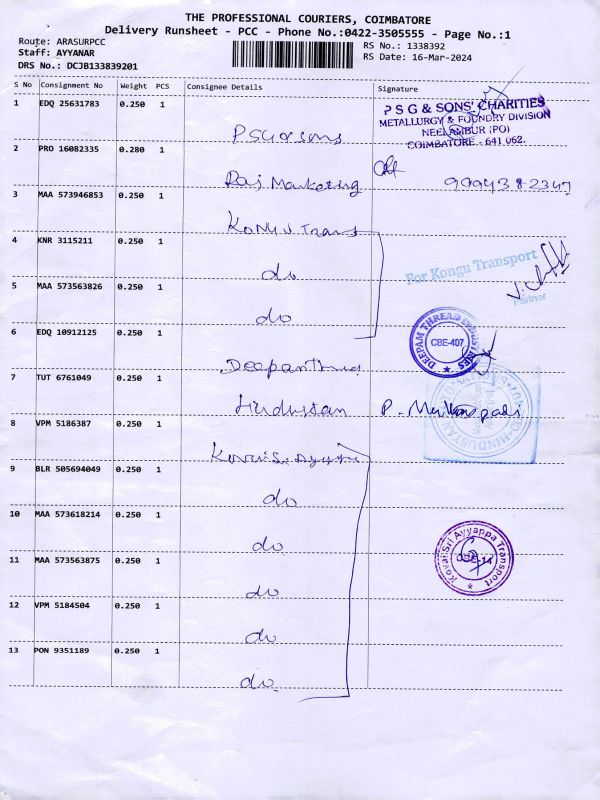 THE PROFESSIONAL COURIERS, COIMBATORE
Delivery Runsheet - PCC - Phone No.:0422-3505555 - Page No.:1
Route: ARASURPCC
RS No.: 1338392
Staff: AYYANAR
RS Date: 16-Mar-2024
DRS No.: DCJB133839201
S No Consignment No Weight PCS Consignee Details Signature
1 EDQ 25631783 0.250 1
PSG & SONS' CHARITIES
METALLURGY & FOUNDRY DIVISION
NEELAMBUR (PO)
COIMBATORE - 641 062.
PSG & sons
2 PRO 16082335 0.280 1
Raj Marketing 9994382347
3 MAA 573946853 0.250 1
Kongu Trans
4 KNR 3115211 0.250 1
do
For Kongu Transport
Partner
5 MAA 573563826 0.250 1
do
6 EDQ 10912125 0.250 1
DEEPAM THREAD INDUSTRIES
CBE-407
7 TUT 6761049 0.250 1
Hindustan P.
HINDUSTAN
8 VPM 5186387 0.250 1
9 BLR 505694049 0.250 1
do
10 MAA 573618214 0.250 1
do
Kovai Sri Ayyappa Transport
CBE-14
11 MAA 573563875 0.250 1
do
12 VPM 5184504 0.250 1
do
13 PON 9351189 0.250 1
do